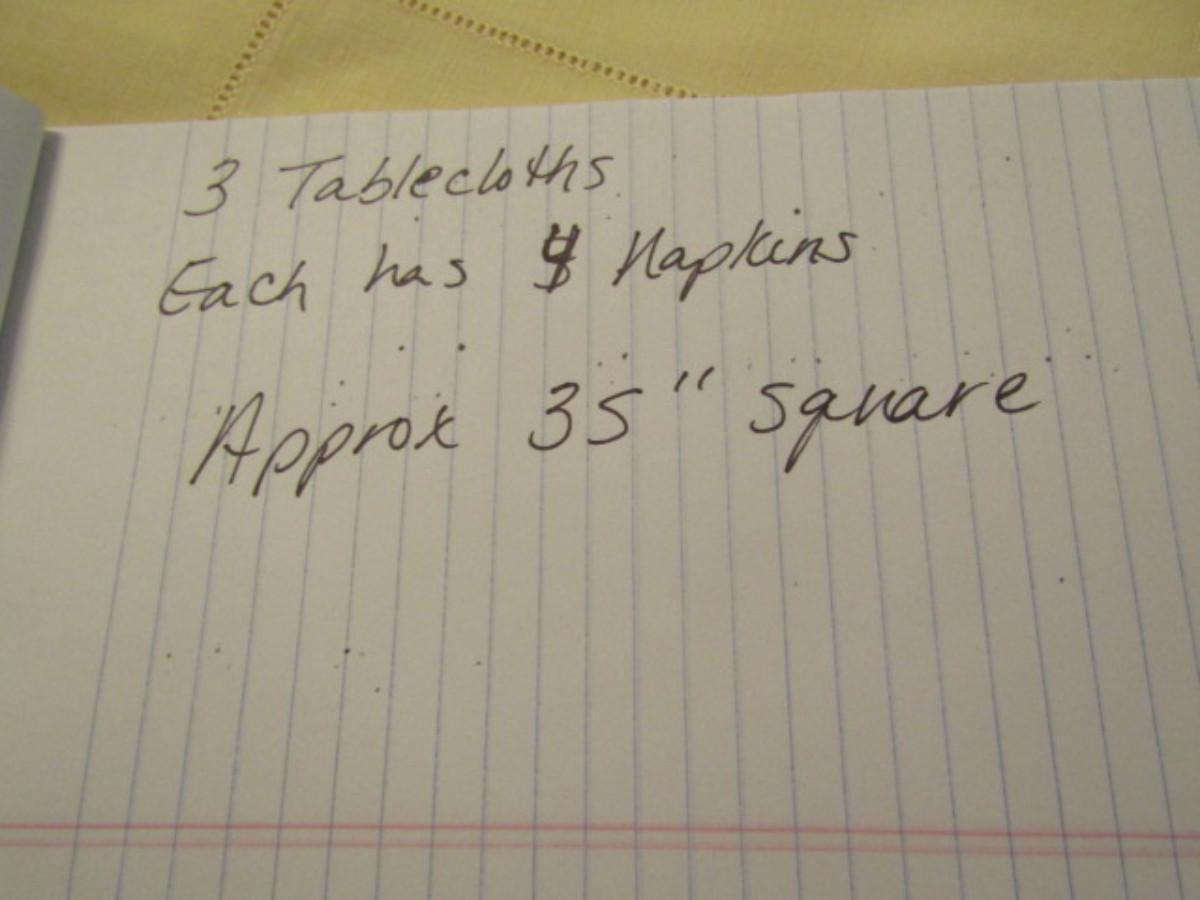 3 Tablecloths
Each has 4 Napkins
Approx 35" square